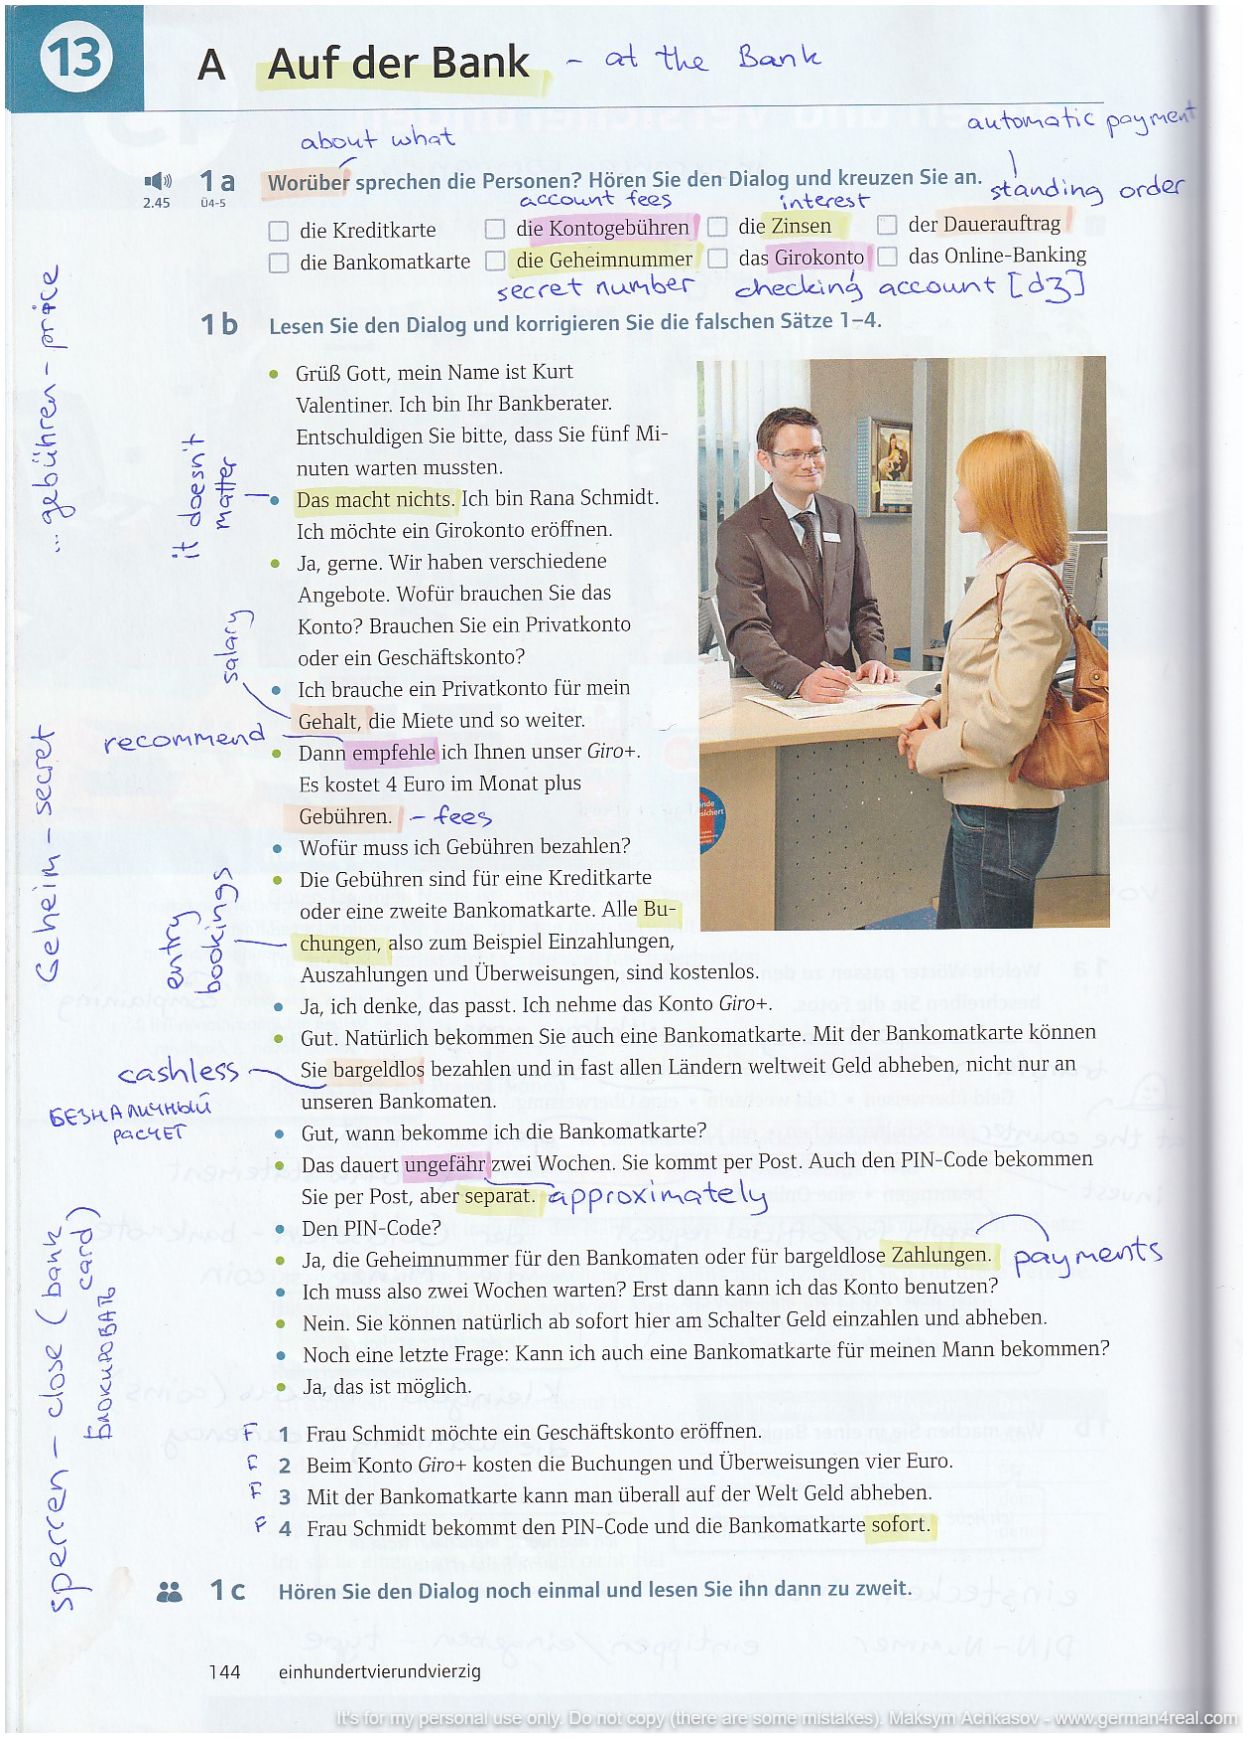 13
A Auf der Bank - at the Bank
automatic payment
about what
2.45
Ü4-5
1a Worüber sprechen die Personen? Hören Sie den Dialog und kreuzen Sie an.
standing order
account fees
interest
die Kreditkarte die Kontogebühren die Zinsen der Dauerauftrag
die Bankomatkarte die Geheimnummer das Girokonto das Online-Banking
secret number checking account [dʒ]
1b Lesen Sie den Dialog und korrigieren Sie die falschen Sätze 1–4.
Grüß Gott, mein Name ist Kurt
Valentiner. Ich bin Ihr Bankberater.
Entschuldigen Sie bitte, dass Sie fünf Mi-
nuten warten mussten.
Das macht nichts. Ich bin Rana Schmidt.
Ich möchte ein Girokonto eröffnen.
Ja, gerne. Wir haben verschiedene
Angebote. Wofür brauchen Sie das
Konto? Brauchen Sie ein Privatkonto
oder ein Geschäftskonto?
Ich brauche ein Privatkonto für mein
Gehalt, die Miete und so weiter.
Dann empfehle ich Ihnen unser Giro+.
Es kostet 4 Euro im Monat plus
Gebühren. - fees
Wofür muss ich Gebühren bezahlen?
Die Gebühren sind für eine Kreditkarte
oder eine zweite Bankomatkarte. Alle Bu-
chungen, also zum Beispiel Einzahlungen,
Auszahlungen und Überweisungen, sind kostenlos.
Ja, ich denke, das passt. Ich nehme das Konto Giro+.
Gut. Natürlich bekommen Sie auch eine Bankomatkarte. Mit der Bankomatkarte können
Sie bargeldlos bezahlen und in fast allen Ländern weltweit Geld abheben, nicht nur an
unseren Bankomaten.
Gut, wann bekomme ich die Bankomatkarte?
Das dauert ungefähr zwei Wochen. Sie kommt per Post. Auch den PIN-Code bekommen
Sie per Post, aber separat. approximately
Den PIN-Code?
Ja, die Geheimnummer für den Bankomaten oder für bargeldlose Zahlungen. payments
Ich muss also zwei Wochen warten? Erst dann kann ich das Konto benutzen?
Nein. Sie können natürlich ab sofort hier am Schalter Geld einzahlen und abheben.
Noch eine letzte Frage: Kann ich auch eine Bankomatkarte für meinen Mann bekommen?
Ja, das ist möglich.
F 1 Frau Schmidt möchte ein Geschäftskonto eröffnen.
F 2 Beim Konto Giro+ kosten die Buchungen und Überweisungen vier Euro.
F 3 Mit der Bankomatkarte kann man überall auf der Welt Geld abheben.
F 4 Frau Schmidt bekommt den PIN-Code und die Bankomatkarte sofort.
1c Hören Sie den Dialog noch einmal und lesen Sie ihn dann zu zweit.
144 einhundertvierundvierzig
... gebühren - price
it doesn't
matter
salary
recommend
Geheim - secret
entry
bookings
cashless
БЕЗНАЛИЧНЫЙ
РАСЧЕТ
sperren - close (bank
card)
БЛОКИРОВАТЬ
It's for my personal use only. Do not copy (there are some mistakes). Maksym Achkasov - www.german4real.com